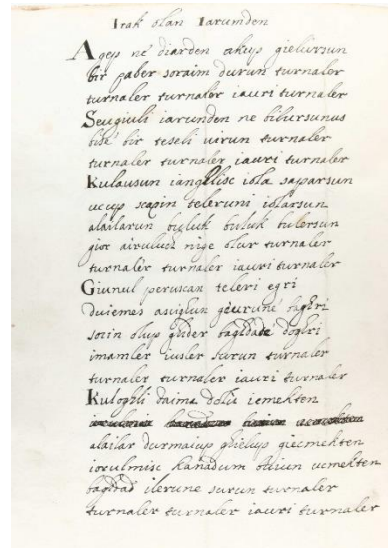 Irak olan Iarumden
Agep ne diarden cakup gielursun
bir paber soraim durun turnaler
turnaler turnaler iauri turnaler
Seugiuli iarunden ne bilursunus
bise bir teseli uirun turnaler
turnaler turnaler iauri turnaler
Kulausun iangelisc iola saparsun
ucup scapin teleruni iolarsun
alailarun buluk buluk bulersun
gior airuluch nige olur turnaler
turnaler turnaler iauri turnaler
Giunul peruscan teleri egri
duiemes asuiglun giurune baghri
sorin olup ghider bagdade doghri
imamler iusler surun turnaler
turnaler turnaler iauri turnaler
Kuloghli daima dolu iemekten
alailar durmaiup ghielup giecmekten
iorulmisc kanadum otiun ucmekten
bagdad ilerune surun turnaler
turnaler turnaler iauri turnaler